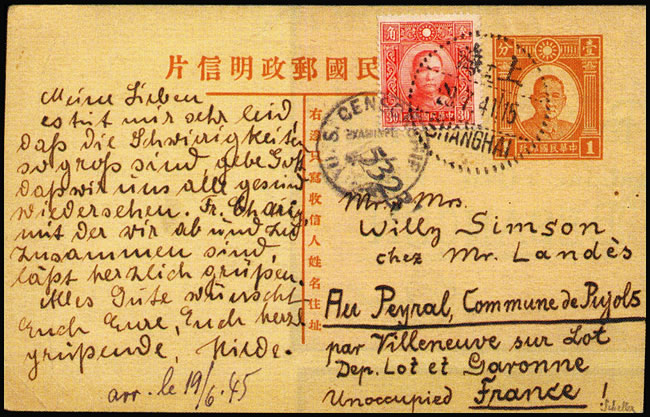 中華民國郵政明信片
Meine Lieben
es tut mir sehr leid,
daß die Schwierigkeiten
so groß sind, gebe Gott
daß wir uns alle gesund
wiedersehen. Fr.
mit der wir ab und zu
zusammen sind,
läßt herzlich grüßen.
Alles Gute wünscht
Euch Eure, Euch herzl
grüßende, Hilde.
arr. le 19/6.45
右邊只寫收信人姓名住址
角
30
30
U.S. CENSORSHIP
EXAMINED
532
上海
41.15
SHANGHAI
分
壹
中華民國郵政
1
1
Mr. Mrs.
Willy Simson
chez Mr. Landès
Au Peyral, Commune de Pujols
par Villeneuve sur Lot
Dep. Lot et Garonne
Unoccupied France!